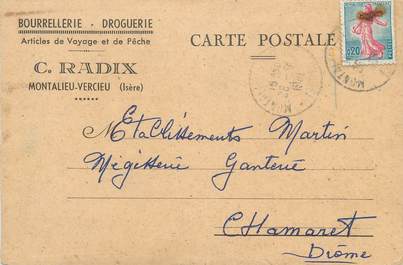 BOURRELLERIE - DROGUERIE
Articles de Voyage et de Pêche
C. RADIX
MONTALIEU-VERCIEU (Isère)
CARTE POSTALE
0,20
Etablissements Martin
Mégisserie Ganterie
Chamaret
Drôme